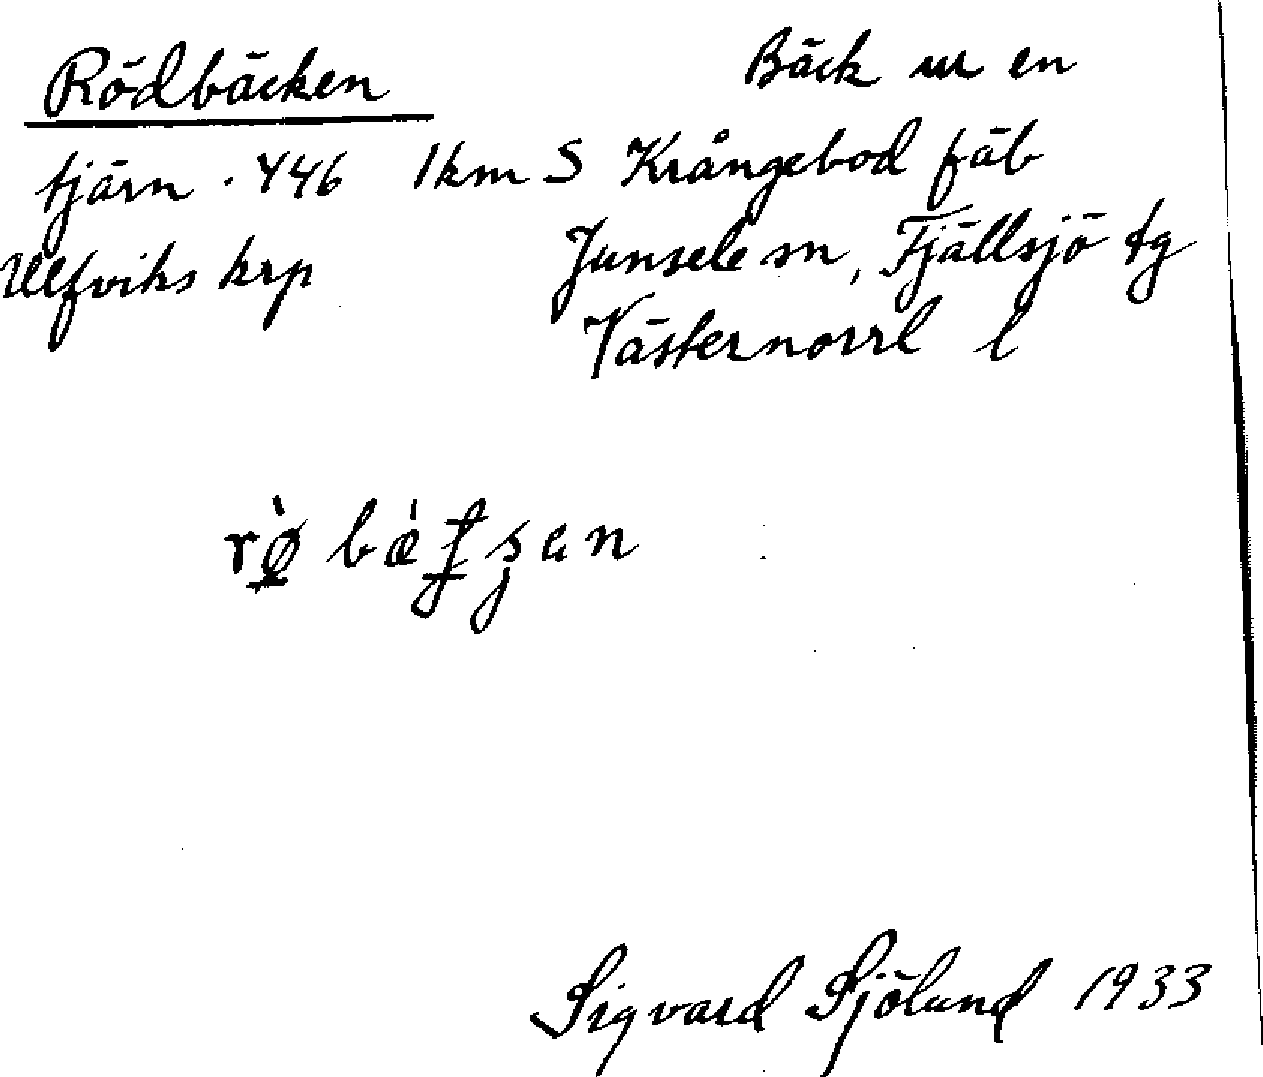 Rödbäcken Bäck ur en
tjärn . 446 1 km S Krångebod fäb
Ulfviks krp Junsele sn, Fjällsjö tg
Västernorrl l
Sigvard Sjölund 1933